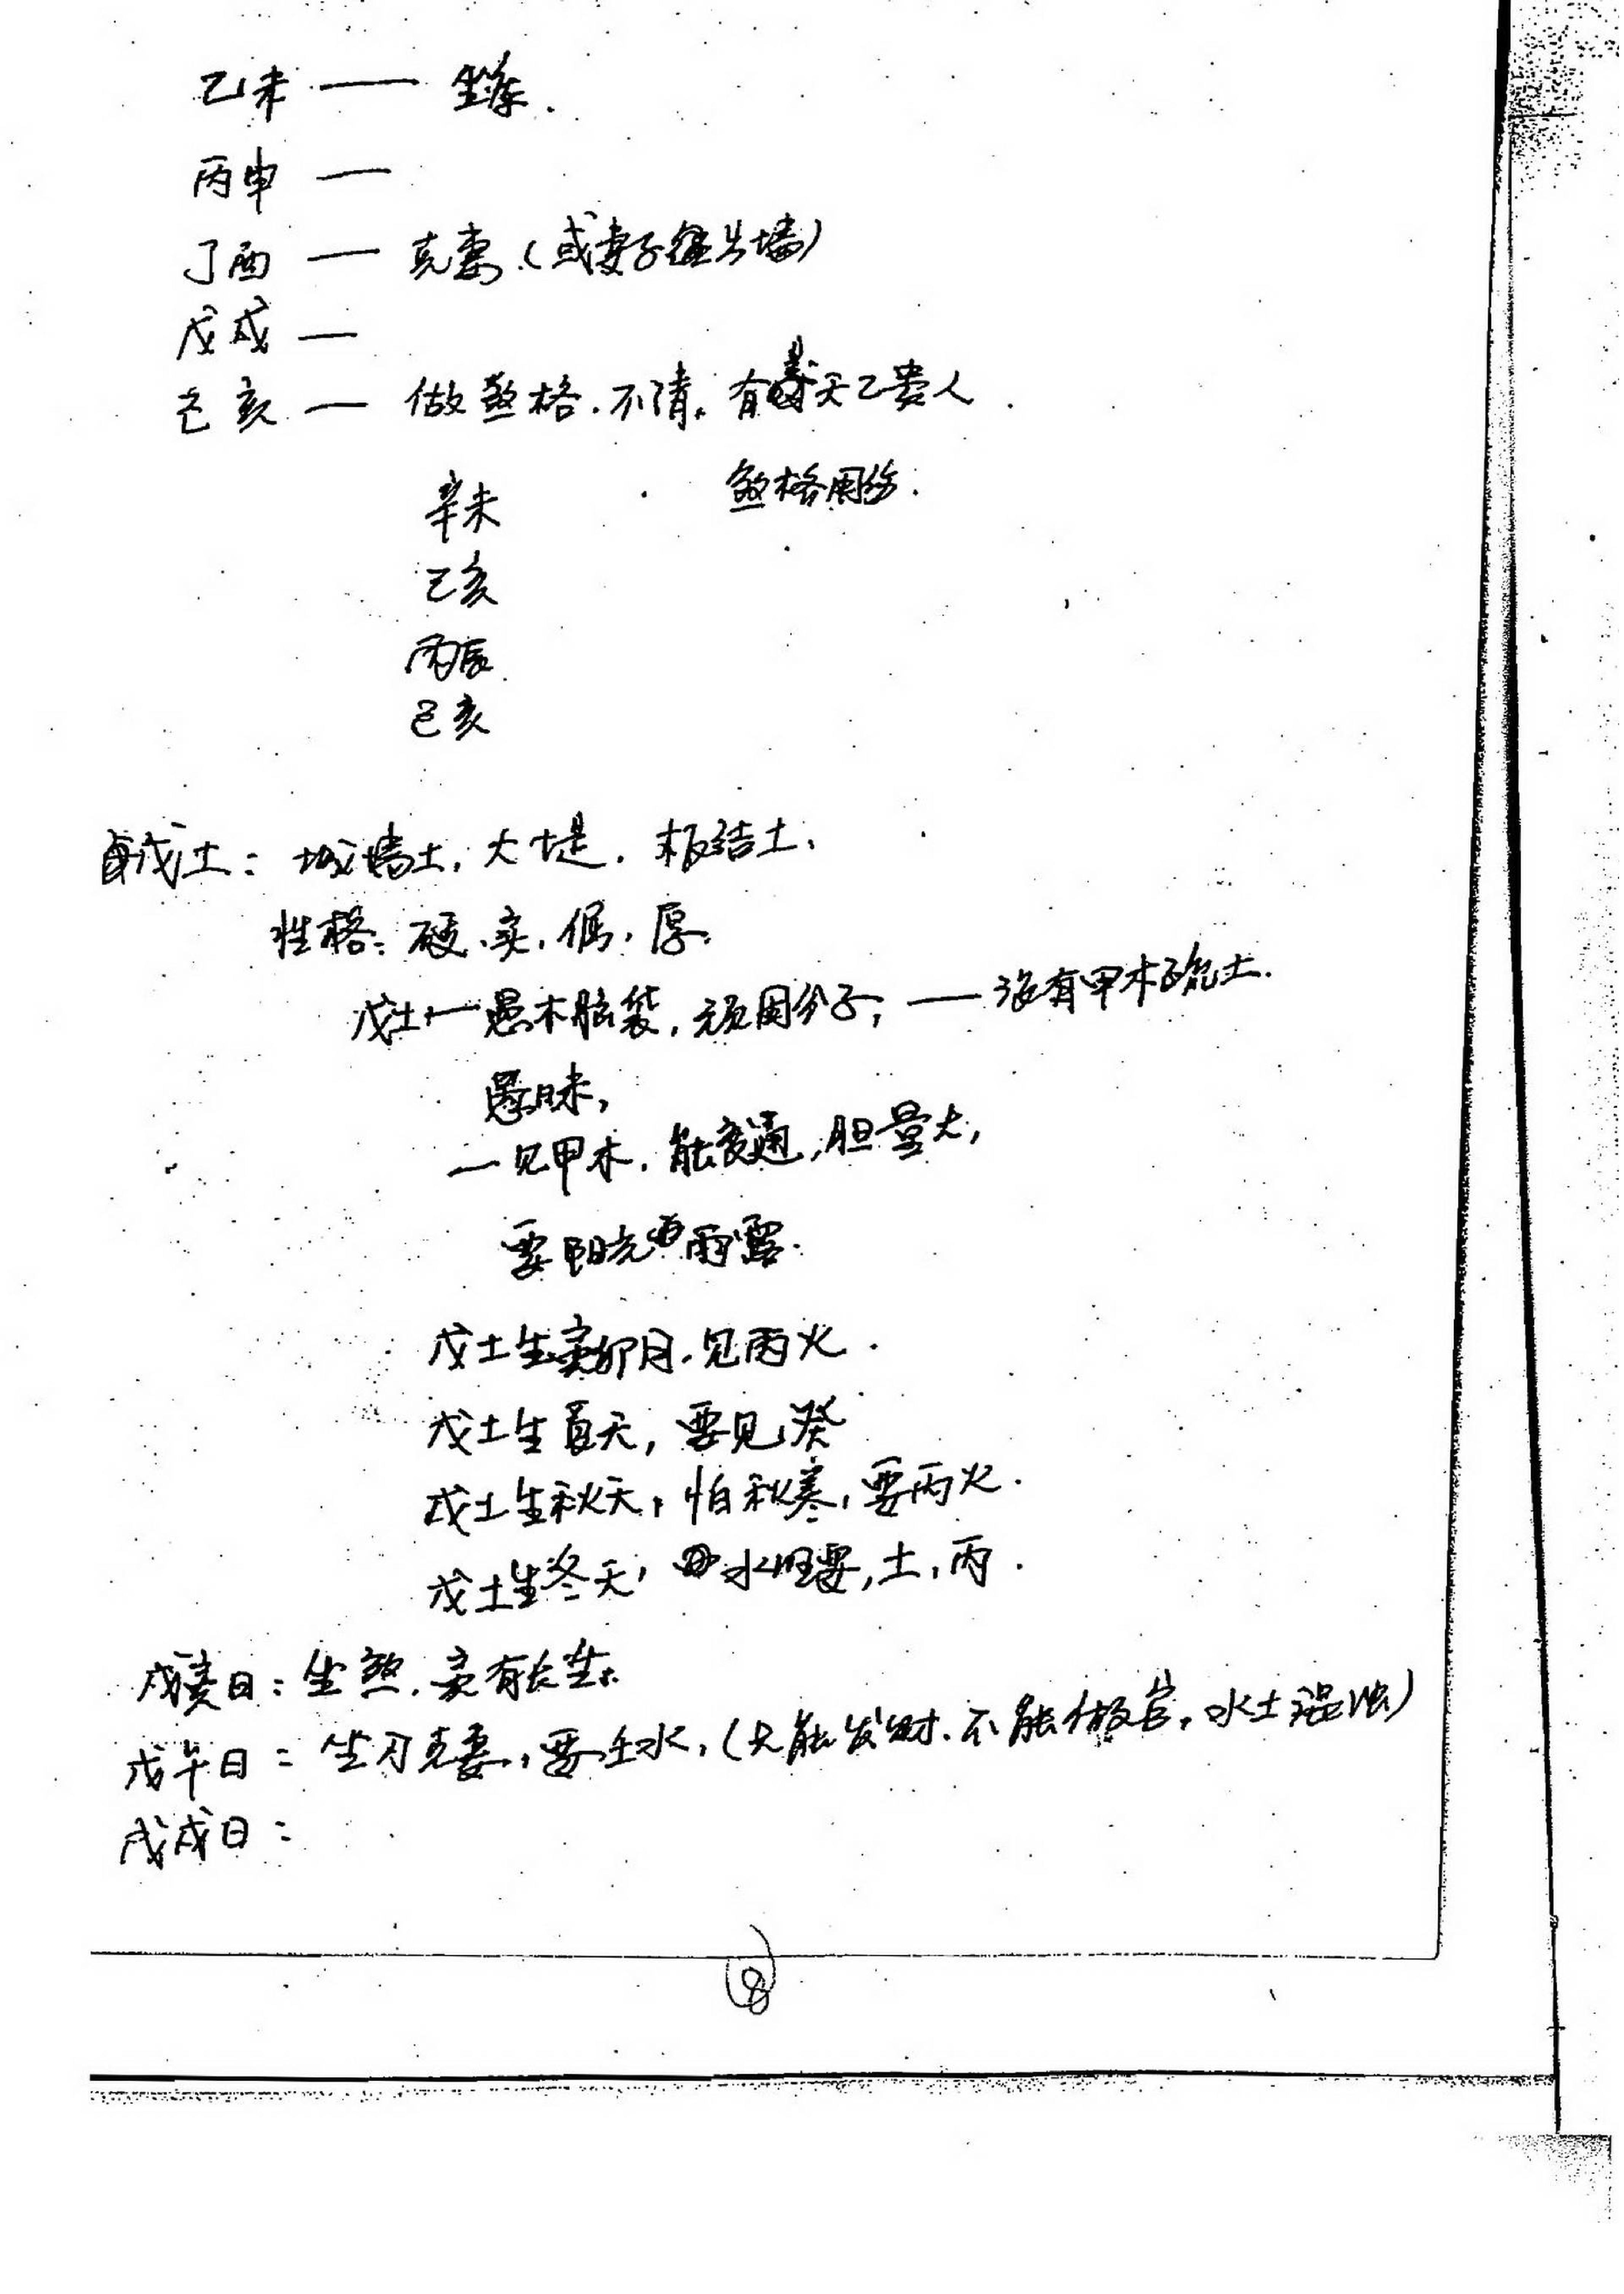 乙未 — 坐库.
丙申 —
丁酉 — 克妻.(或妻子红出墙)
戊戌 —
己亥 — 做煞格.不清.有天乙贵人.
煞格用伤.
辛未
乙亥
丙辰
己亥
戊土: 城墙土,大堤.板结土.
性格: 硬.实.倔.厚.
戊土 — 愚木脑袋,顽固分子, — 没有甲木疏土.
愚昧,
— 见甲木.能变通,胆量大,
要阳光雨露.
戊土生寅卯月.见丙火.
戊土生夏天,要见癸
戊土生秋天,怕秋寒,要丙火.
戊土生冬天,水旺要,土,丙.
戊寅日: 坐煞.寅有长生.
戊午日: 坐刃克妻,要壬水,(只能发财.不能做官,水土混浊)
戊戌日:
8